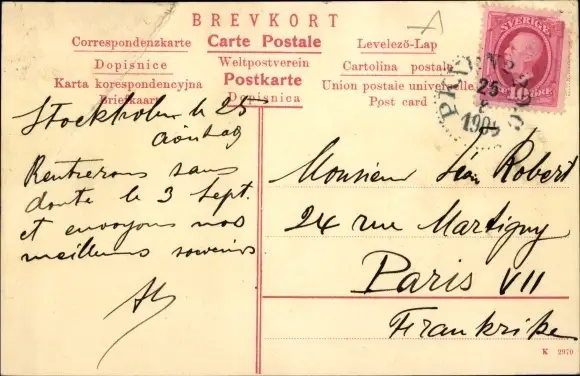 BREVKORT
Correspondenzkarte
Carte Postale
Levelező-Lap
Dopisnice
Weltpostverein
Cartolina postale
Karta korespondencyjna
Postkarte
Union postale universelle
Briefkaart
Dopisnica
Post card
SVERIGE
10 ÖRE
25
8
190
Stockholm le 25
Rentrerons sans
doute le 3 Sept.
et envoyons nos
meilleurs souvenirs
Monsieur Léon Robert
24 rue Martigny
Paris VII
Frankrike
K 2979